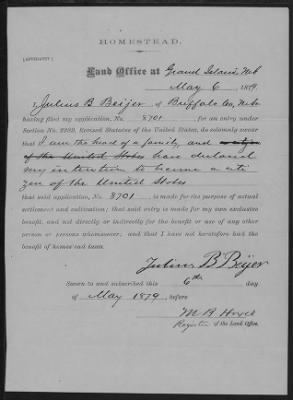 HOMESTEAD.
[AFFIDAVIT.]
Land Office at Grand Island, Neb
May 6, 1879.
I, Julius B Beijer of Buffalo Co, Nebr
having filed my application, No. 8701 for an entry under
Section No. 2289, Revised Statutes of the United States, do solemnly swear
that I am the head of a family, and a citizen
of the United States have declared
my intention to become a citi
zen of the United States
that said application, No. 8701 is made for the purpose of actual
settlement and cultivation; that said entry is made for my own exclusive
benefit, and not directly or indirectly for the benefit or use of any other
person or persons whomsoever; and that I have not heretofore had the
benefit of homestead laws.
Julius B Beijer
Sworn to and subscribed this 6th day
of May 1879, before
M B
Register of the Land Office.